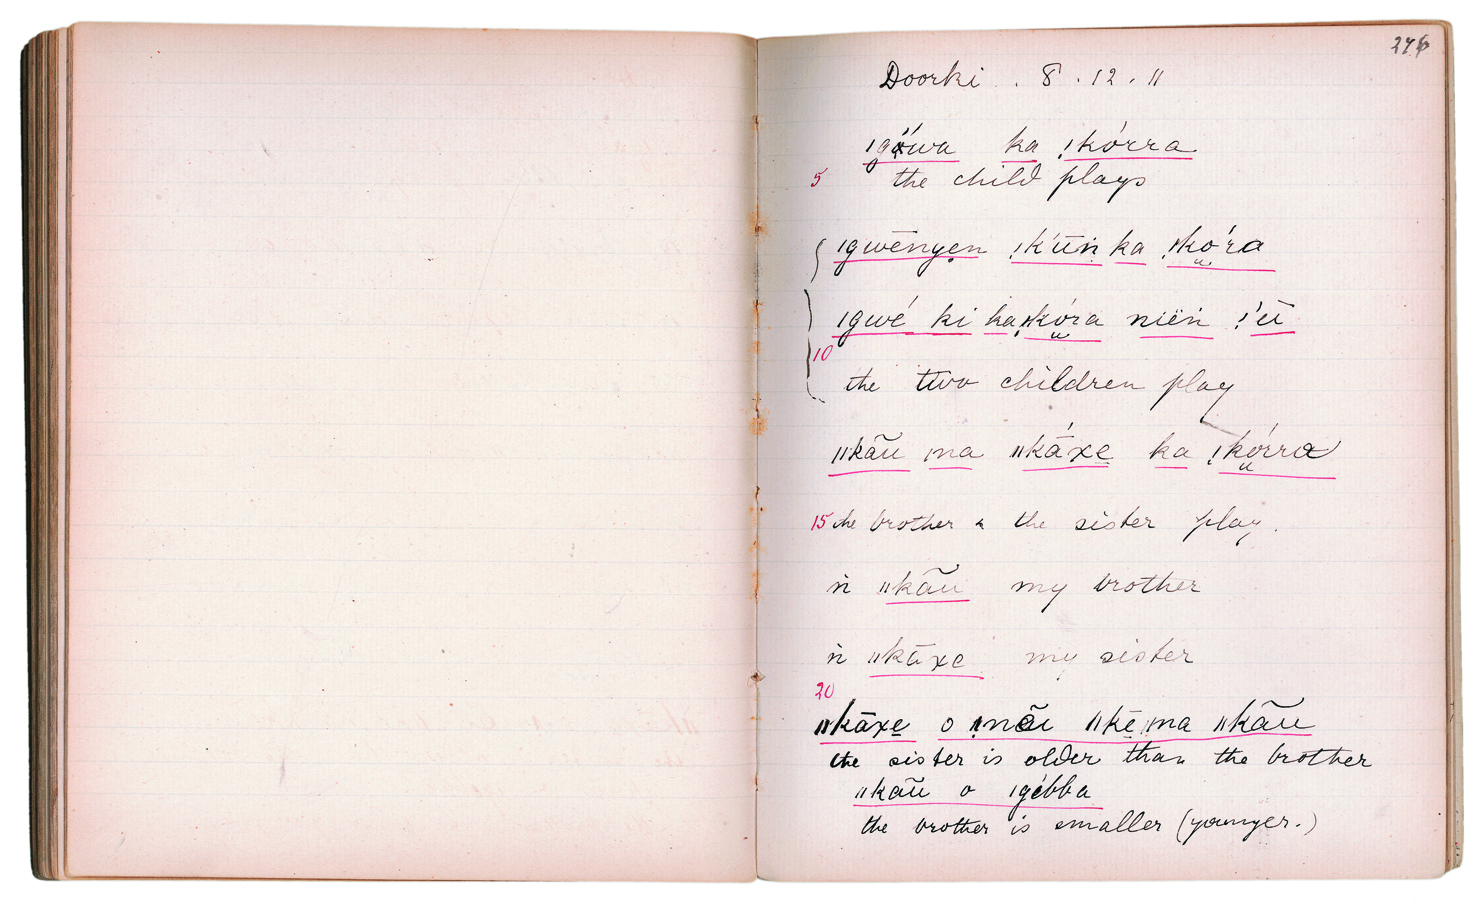 Doorki . 8 . 12 . 11
ka ǃkórra
5 the child plays
ǀgwēnyen ǃk'ūṅ ka ǃkóra
ǀgwé ki ka ǃkóra niëṅ ǃ'ū
10
the two children play
ǁkãū ǀna ǁkāxe ka ǃkórra
15 the brother & the sister play.
ṅ ǁkãū my brother
ṅ ǁkāxe my sister
20
ǁkāxe o ǁkē ǀna ǁkãū
the sister is older than the brother
ǁkãū o ǀgébba
the brother is smaller (younger.)